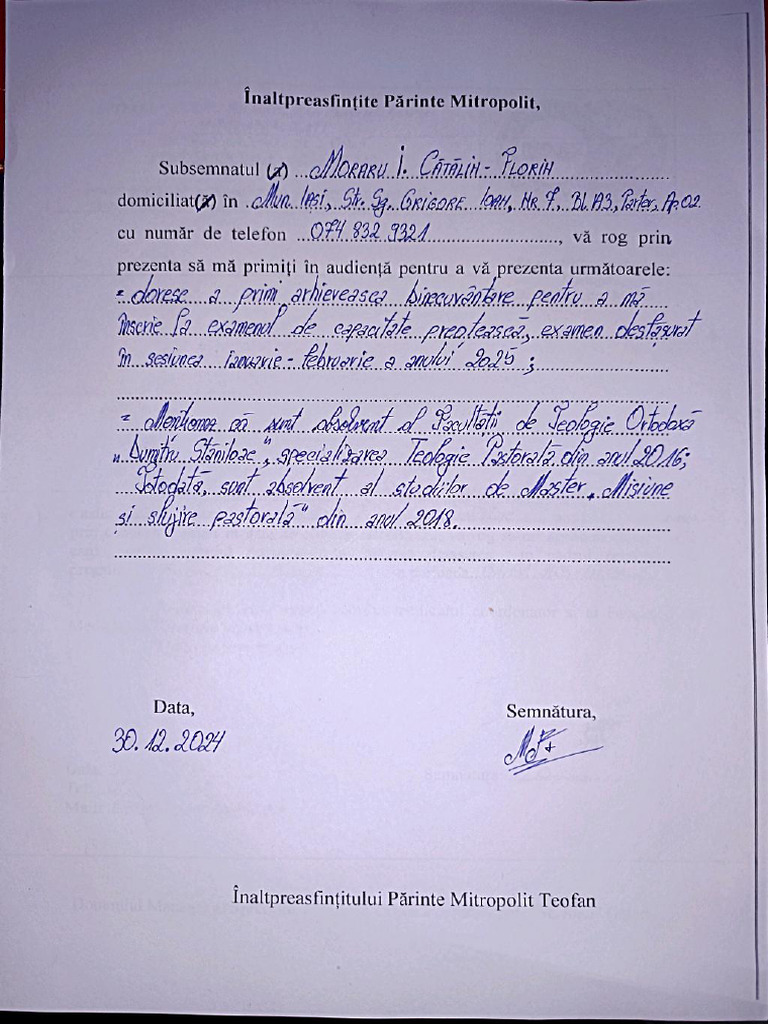 Înaltpreasfințite Părinte Mitropolit,
Subsemnatul (a) ...MORARU I. CĂTĂLIN-FLORIN
domiciliat(ă) în .Mun. Iași, Str. Sg. GRIGORE IOAN, NR. 7, BL. A3, Parter, Ap.02
cu număr de telefon ...074 832 9321..., vă rog prin
prezenta să mă primiți în audiență pentru a vă prezenta următoarele:
- doresc a primi arhiereasca binecuvântare pentru a mă
înscrie la examenul de capacitate preoțească, examen desfășurat
în sesiunea ianuarie - februarie a anului 2025;
- Menționez că sunt absolvent al Facultății de Teologie Ortodoxă
„Dumitru Stăniloae", specializarea Teologie Pastorală din anul 2016;
Totodată, sunt absolvent al studiilor de Master „Misiune
și slujire pastorală" din anul 2018.
Data,
30.12.2024
Semnătura,
Înaltpreasfințitului Părinte Mitropolit Teofan